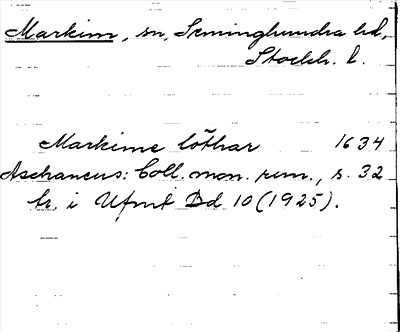 Markim, sn, Seminghundra hd,
Stockh. l.
Markime lõthar 1634
Aschaneus: Coll. mon. run., s. 32
tr. i Ufmt Bd 10 (1925).